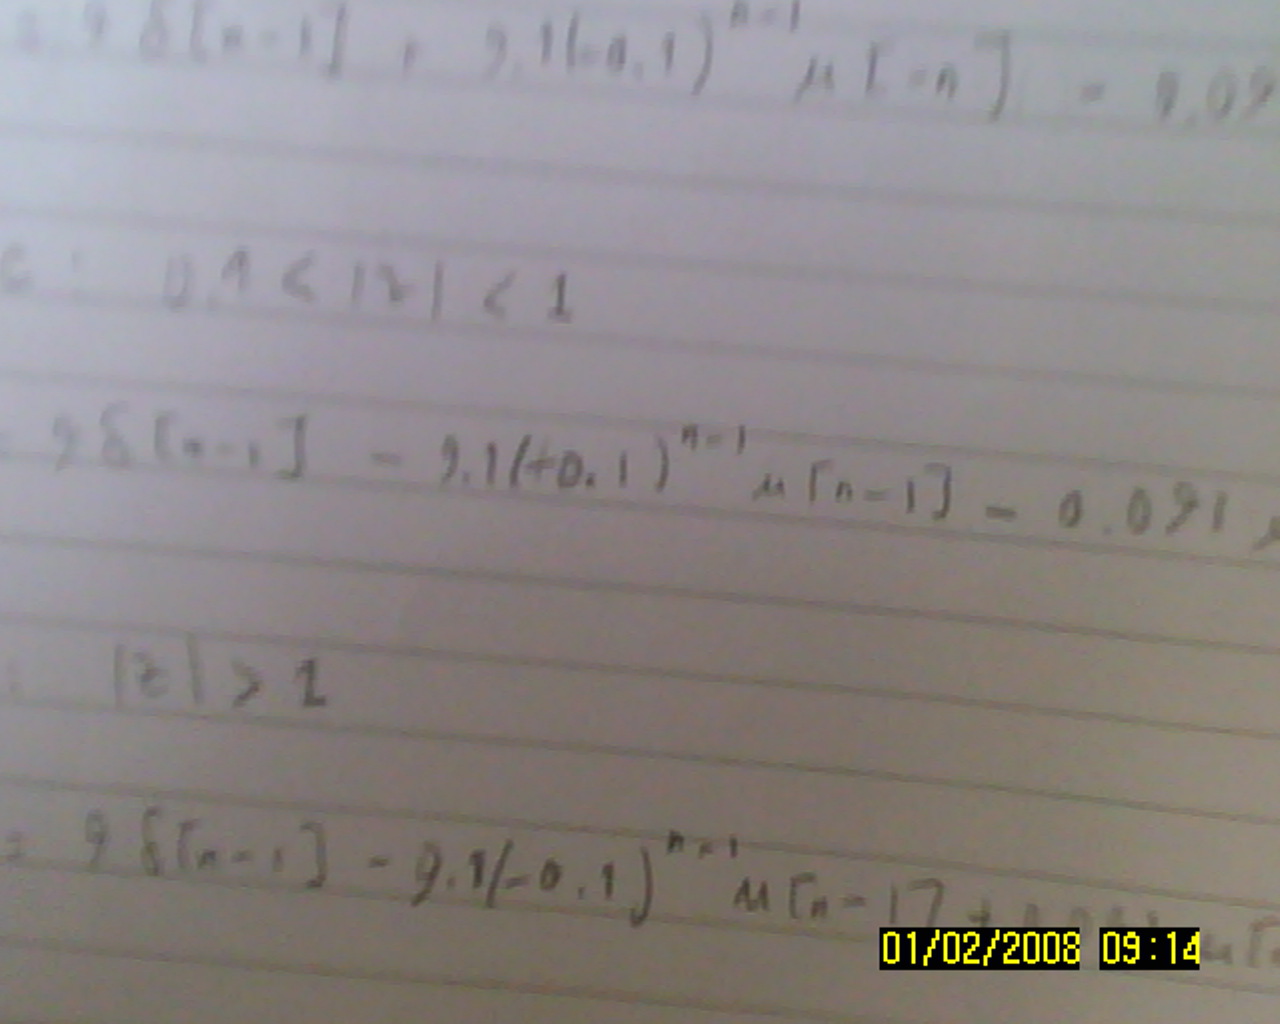 9 δ[n-1] + 9.1(-0.1)^{n-1} μ[-n] - 0.09
C : 0.1 < |z| < 1
9δ[n-1] - 9.1(+0.1)^{n-1} μ[n-1] - 0.091 μ
: |z| > 1
= 9 δ[n-1] - 9.1(-0.1)^{n-1} μ[n-1] +
01/02/2008 09:14